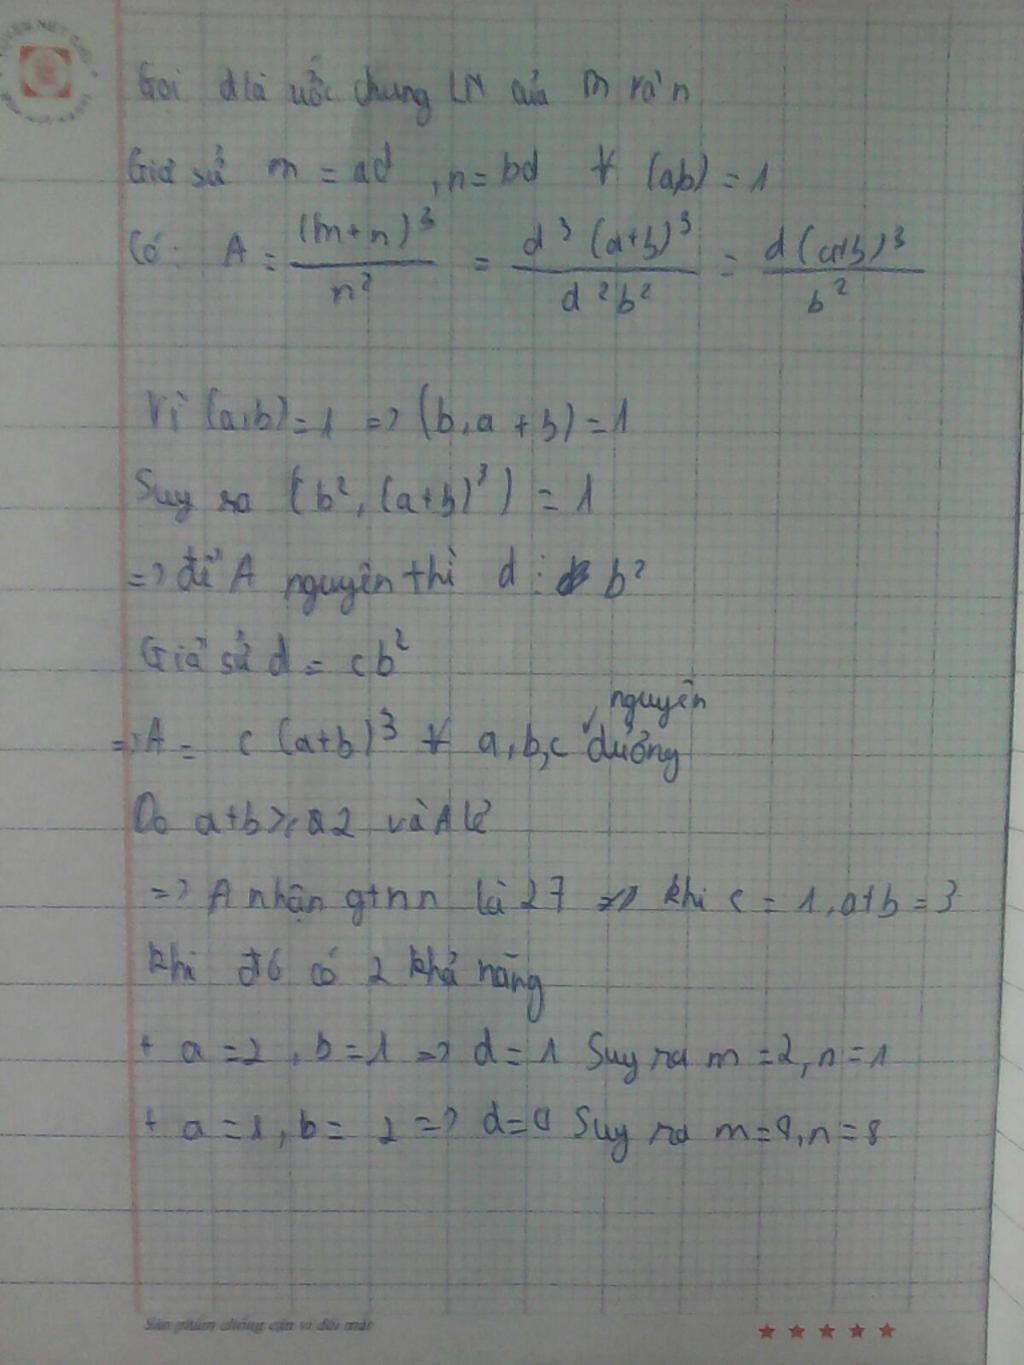 Gọi d là ước chung LN của m và n
Giả sử m = ad , n = bd + (a,b) = 1
Có: A = (m+n)³ / n² = d³(a+b)³ / d²b² = d(a+b)³ / b²
Vì (a,b) = 1 => (b, a + b) = 1
Suy ra (b², (a+b)³) = 1
=> để A nguyên thì d ⋮ b²
Giả sử d = cb²
=> A = c (a+b)³ + a, b, c nguyên dương
Do a+b ≥ 2 và A lẻ
=> A nhận gtnn là 27 khi c = 1, a+b = 3
Khi đó có 2 khả năng
+ a = 2 , b = 1 => d = 1 Suy ra m = 2, n = 1
+ a = 1 , b = 2 => d = Suy ra m = , n = 8
Sản phẩm chống cận vì đôi mắt